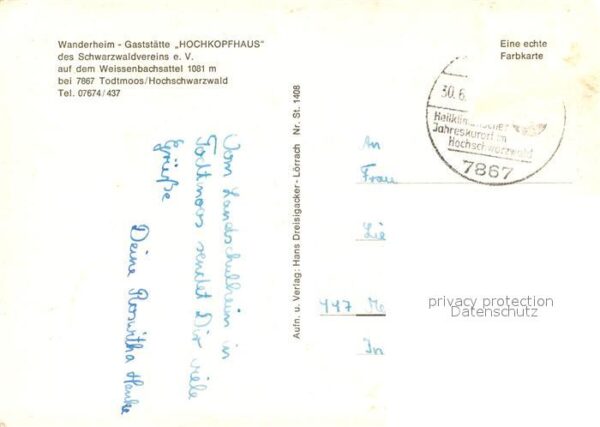 Wanderheim - Gaststätte „HOCHKOPFHAUS"
des Schwarzwaldvereins e. V.
auf dem Weissenbachsattel 1081 m
bei 7867 Todtmoos/Hochschwarzwald
Tel. 07674/437
Eine echte
Farbkarte
30.6.
Heilklimatischer
Jahreskurort im
Hochschwarzwald
7867
Vom Landschulheim in
Todtmoos sendet Dir viele
Grüße
Deine Roswitha Henke
Aufn. u. Verlag: Hans Dreisigacker - Lörrach Nr. St. 1408
An
Frau
Lie
447 Me
In
privacy protection
Datenschutz